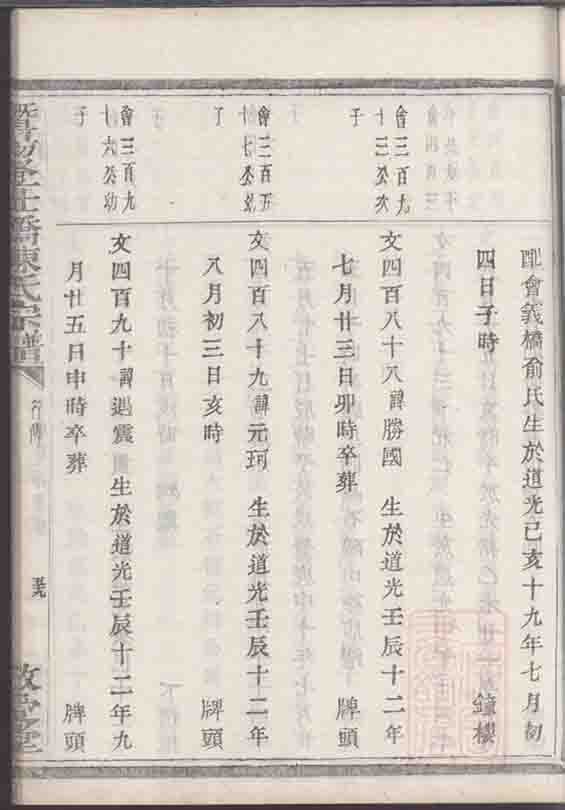 配會義橋俞氏生於道光己亥十九年七月初
四日子時 鐘樓
會三百九
十三公次
子
文四百八十八諱勝國 生於道光壬辰十二年
七月廿三日卯時卒葬 牌頭
會三百五
十七公幼
子
文四百八十九諱元珂 生於道光壬辰十二年
八月初三日亥時 牌頭
會三百九
十六公幼
子
文四百九十諱遇震 生於道光壬辰十二年九
月廿五日申時卒葬 牌頭
橋陳氏宗譜
行傳